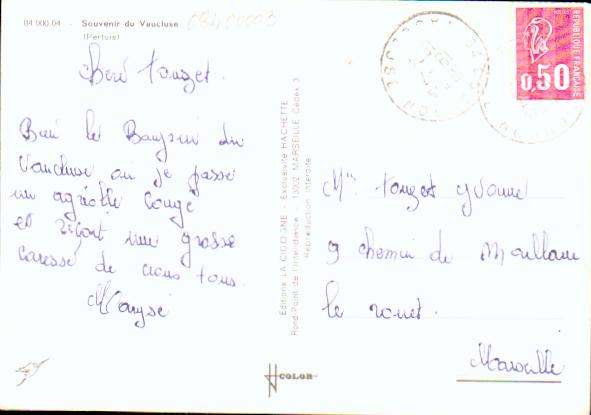 84.000.04 - Souvenir du Vaucluse
(Pertuis)
08400003
Cheré Touzet.
Bien le Bonjour du
Vaucluse ou je passe
un agréable congé
et reçoit une grosse
caresse de nous tous.
Maryse
Editions LA CIGOGNE - Exclusivité HACHETTE
Rond-Point de l'Intendance - 13002 MARSEILLE Cédex 3
Reproduction Interdite
COLOR
0,50
REPUBLIQUE FRANÇAISE
VAUCLUSE
Touzet Yvonne
9 chemin de
le rouet.
Marseille